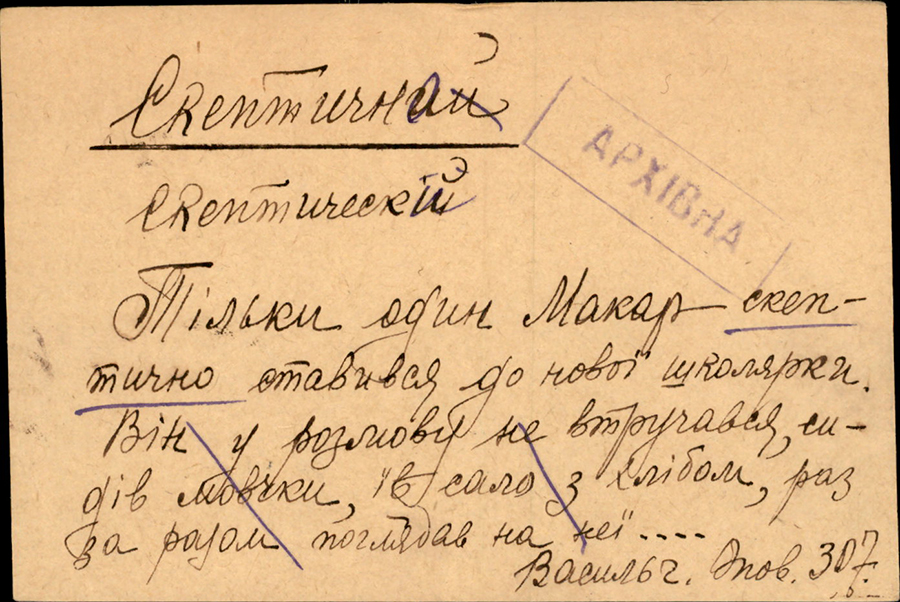 Скептичний
АРХІВНА
скептический
Тільки один Макар скеп-
тично ставився до нової школярки.
Він у розмову не втручався, си-
дів мовчки, їв сало з хлібом, раз
за разом поглядав на неї....
Васильч. Опов. 307.